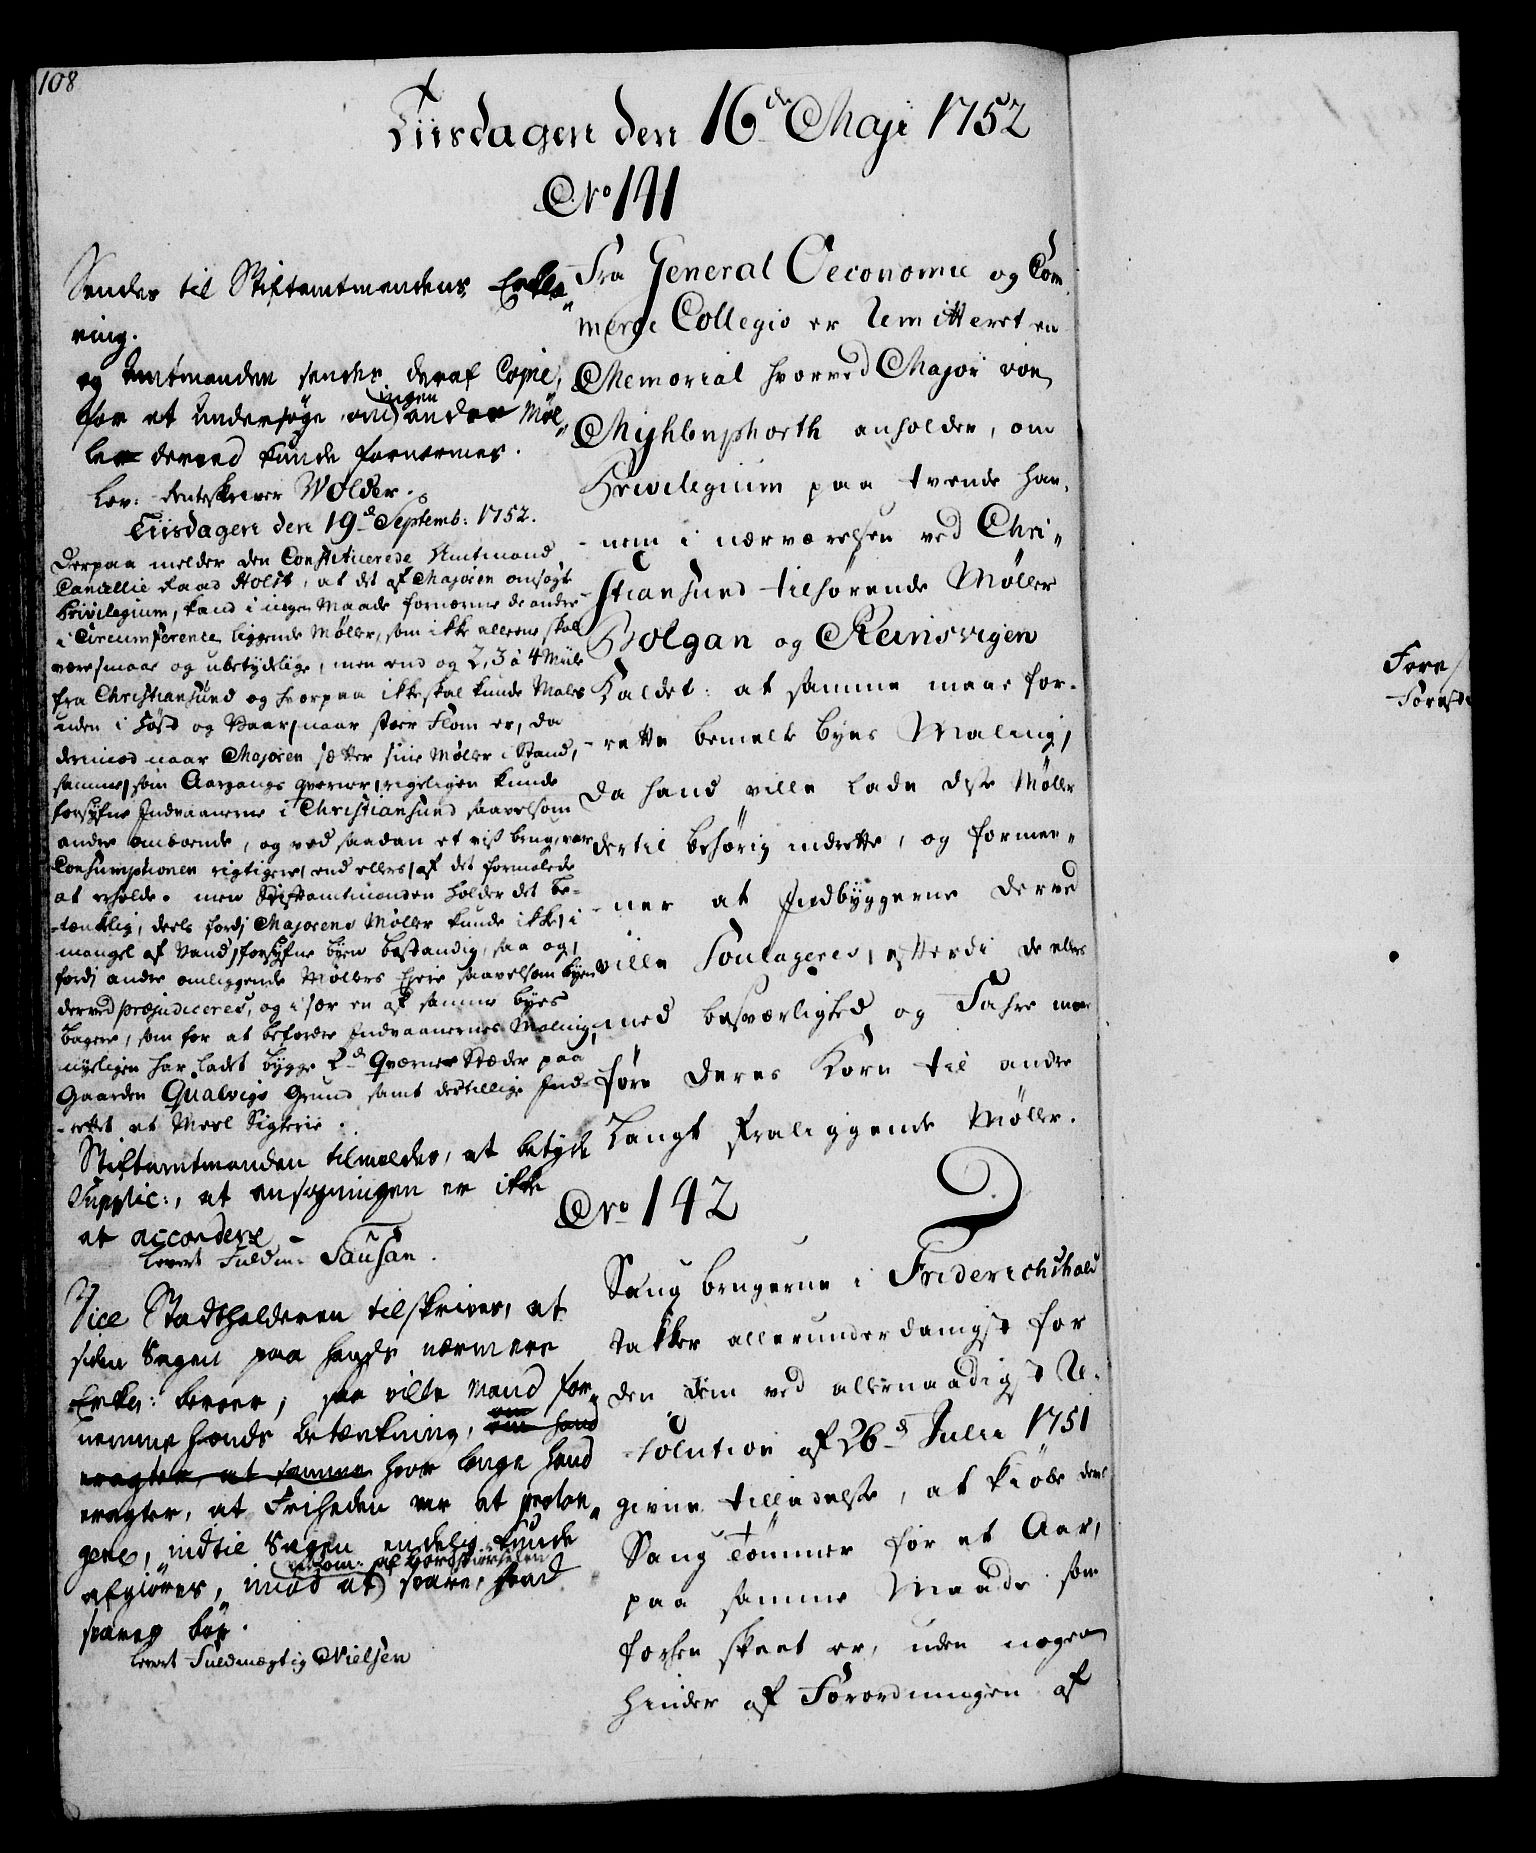 108
Tiisdagen den 16de Maji 1752
No 141
Sendes til Stiftamtmandens Erklæ„
ring.
og Amtmanden sendes deraf Copie,
for at undersøge om ingen andre Møl„
ler derved kunde fornærmes.
Lev: Renteskriver Wolder.
Tiisdagen den 19d Septemb: 1752.
Derpaa melder den Constituerede Amtmand
Cancellie Raad Holst, at det af Majoren ansøgte
Privilegium, kand i ingen Maade fornærme de andre
i Circumference liggende Møller, som ikke allene skal
være smaae og ubetydelige, men end og 2, 3 à 4 Miile
fra Christiansund og hvorpaa ikke skal kunde Males
uden i Høst og Vaar, naar stoer Flom er, da
derimod naar Majoren sætter sine Møller i Stand,
samme, som Aargangs qverner, rigeligen kunde
forsyne Indvaanerne i Christiansund saavelsom
andre omboende, og ved saadan et vist brug, var
Consumptionen rigtigere, end ellers, af det formalede
at erholde. men Stiftamtmanden holder det be-
-tænkelig, deels fordj Majorens Møller kunde ikke, i
mangel af Vand, forsyne byen bestandig, saa og,
fordj andre omliggende Møllers Eyere saavelsom byen
derved præjudiceres, og i sær en af samme byes
Bagere, som for at befordre Indvaanernes Maling,
nyeligen har ladet bygge 2de Qværne Stæder paa
Gaarden Qualvigs Grund samt destillige Ind-
-rettet et Meel Sigterie.
Stiftamtmanden tilmeldes, at betyde
Supplic:, at ansøgningen er ikke
at accordere.
Levert Fuldm: Sausan.
Vice Stadtholderen tilskrives, at
siden Sagen paa hands nærmere
Erkl: beroer, saa ville mand for„
nemme hands Betænkning, om hand
eragter, at samme hvor længe hand
eragter, at Friheden var at prolon„
gere, indtil Sagen endelig kunde
afgiøres, imod at spare, hvad
spares bør.
Levert Fuldmægtig Nielsen
Fra General Oeconomie og Com
merce Collegio er Remitteret en
Memorial hvorved Major von
Myhlenphorth anholder, om
Privilegium paa tvende ham,
-nem i nærværelsen ved Chri„
stiansund tilhørende Møller
Bolgan og Rensvigen
Kaldet: at samme maae for-
-rette bemelte byes Maling,
da hand ville lade disse Møller
dertil behørig indrette, og formee„
-ner at Indbyggerne derved
ville Soulageres, efterdi de ellers
med besværlighed og Fahre maae
føre deres Korn til andre
Langt fraliggende Møller.
No 142
Saug brugerne i Friderichshald
takker allerunderdanigst for
den dem ved allernaadigst Re-
-solution af 26de Julii 1751
givne tilladelse, at kiøbe deres
Saug Tømmer for et Aar,
paa samme Maade som
forhen skeet er, uden nogen
hinder af Forordningen af